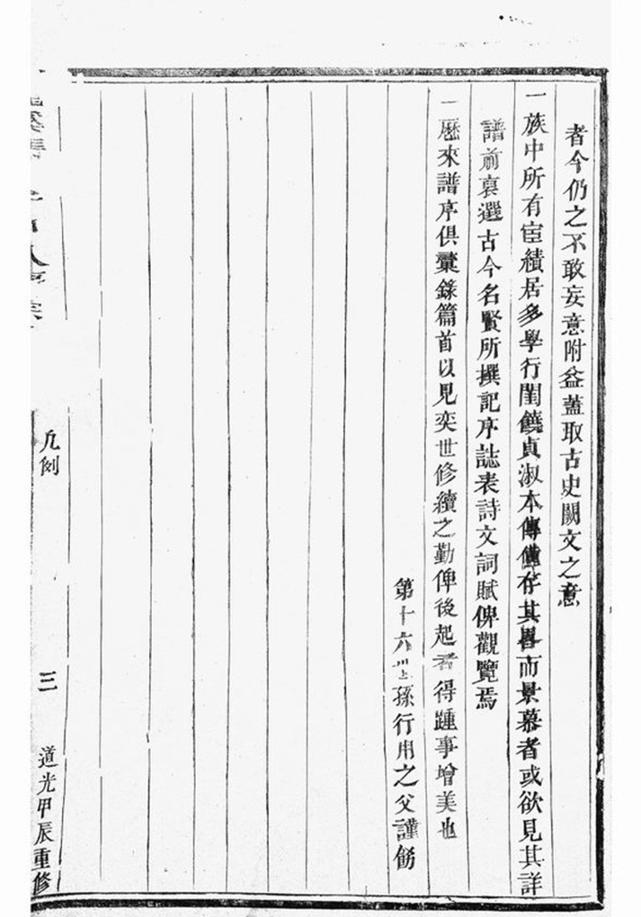 者今仍之不敢妄意附益蓋取古史闕文之意
一族中所有宦績居多學行閨饒貞淑本傳僅存其畧而景慕者或欲見其詳
譜前裒選古今名賢所撰記序誌表詩文詞賦俾觀覽焉
一歷來譜序俱彙錄篇首以見奕世修續之勤俾後起者得踵事增美也
第十六世孫行用之父謹
凡例
三
道光甲辰重修